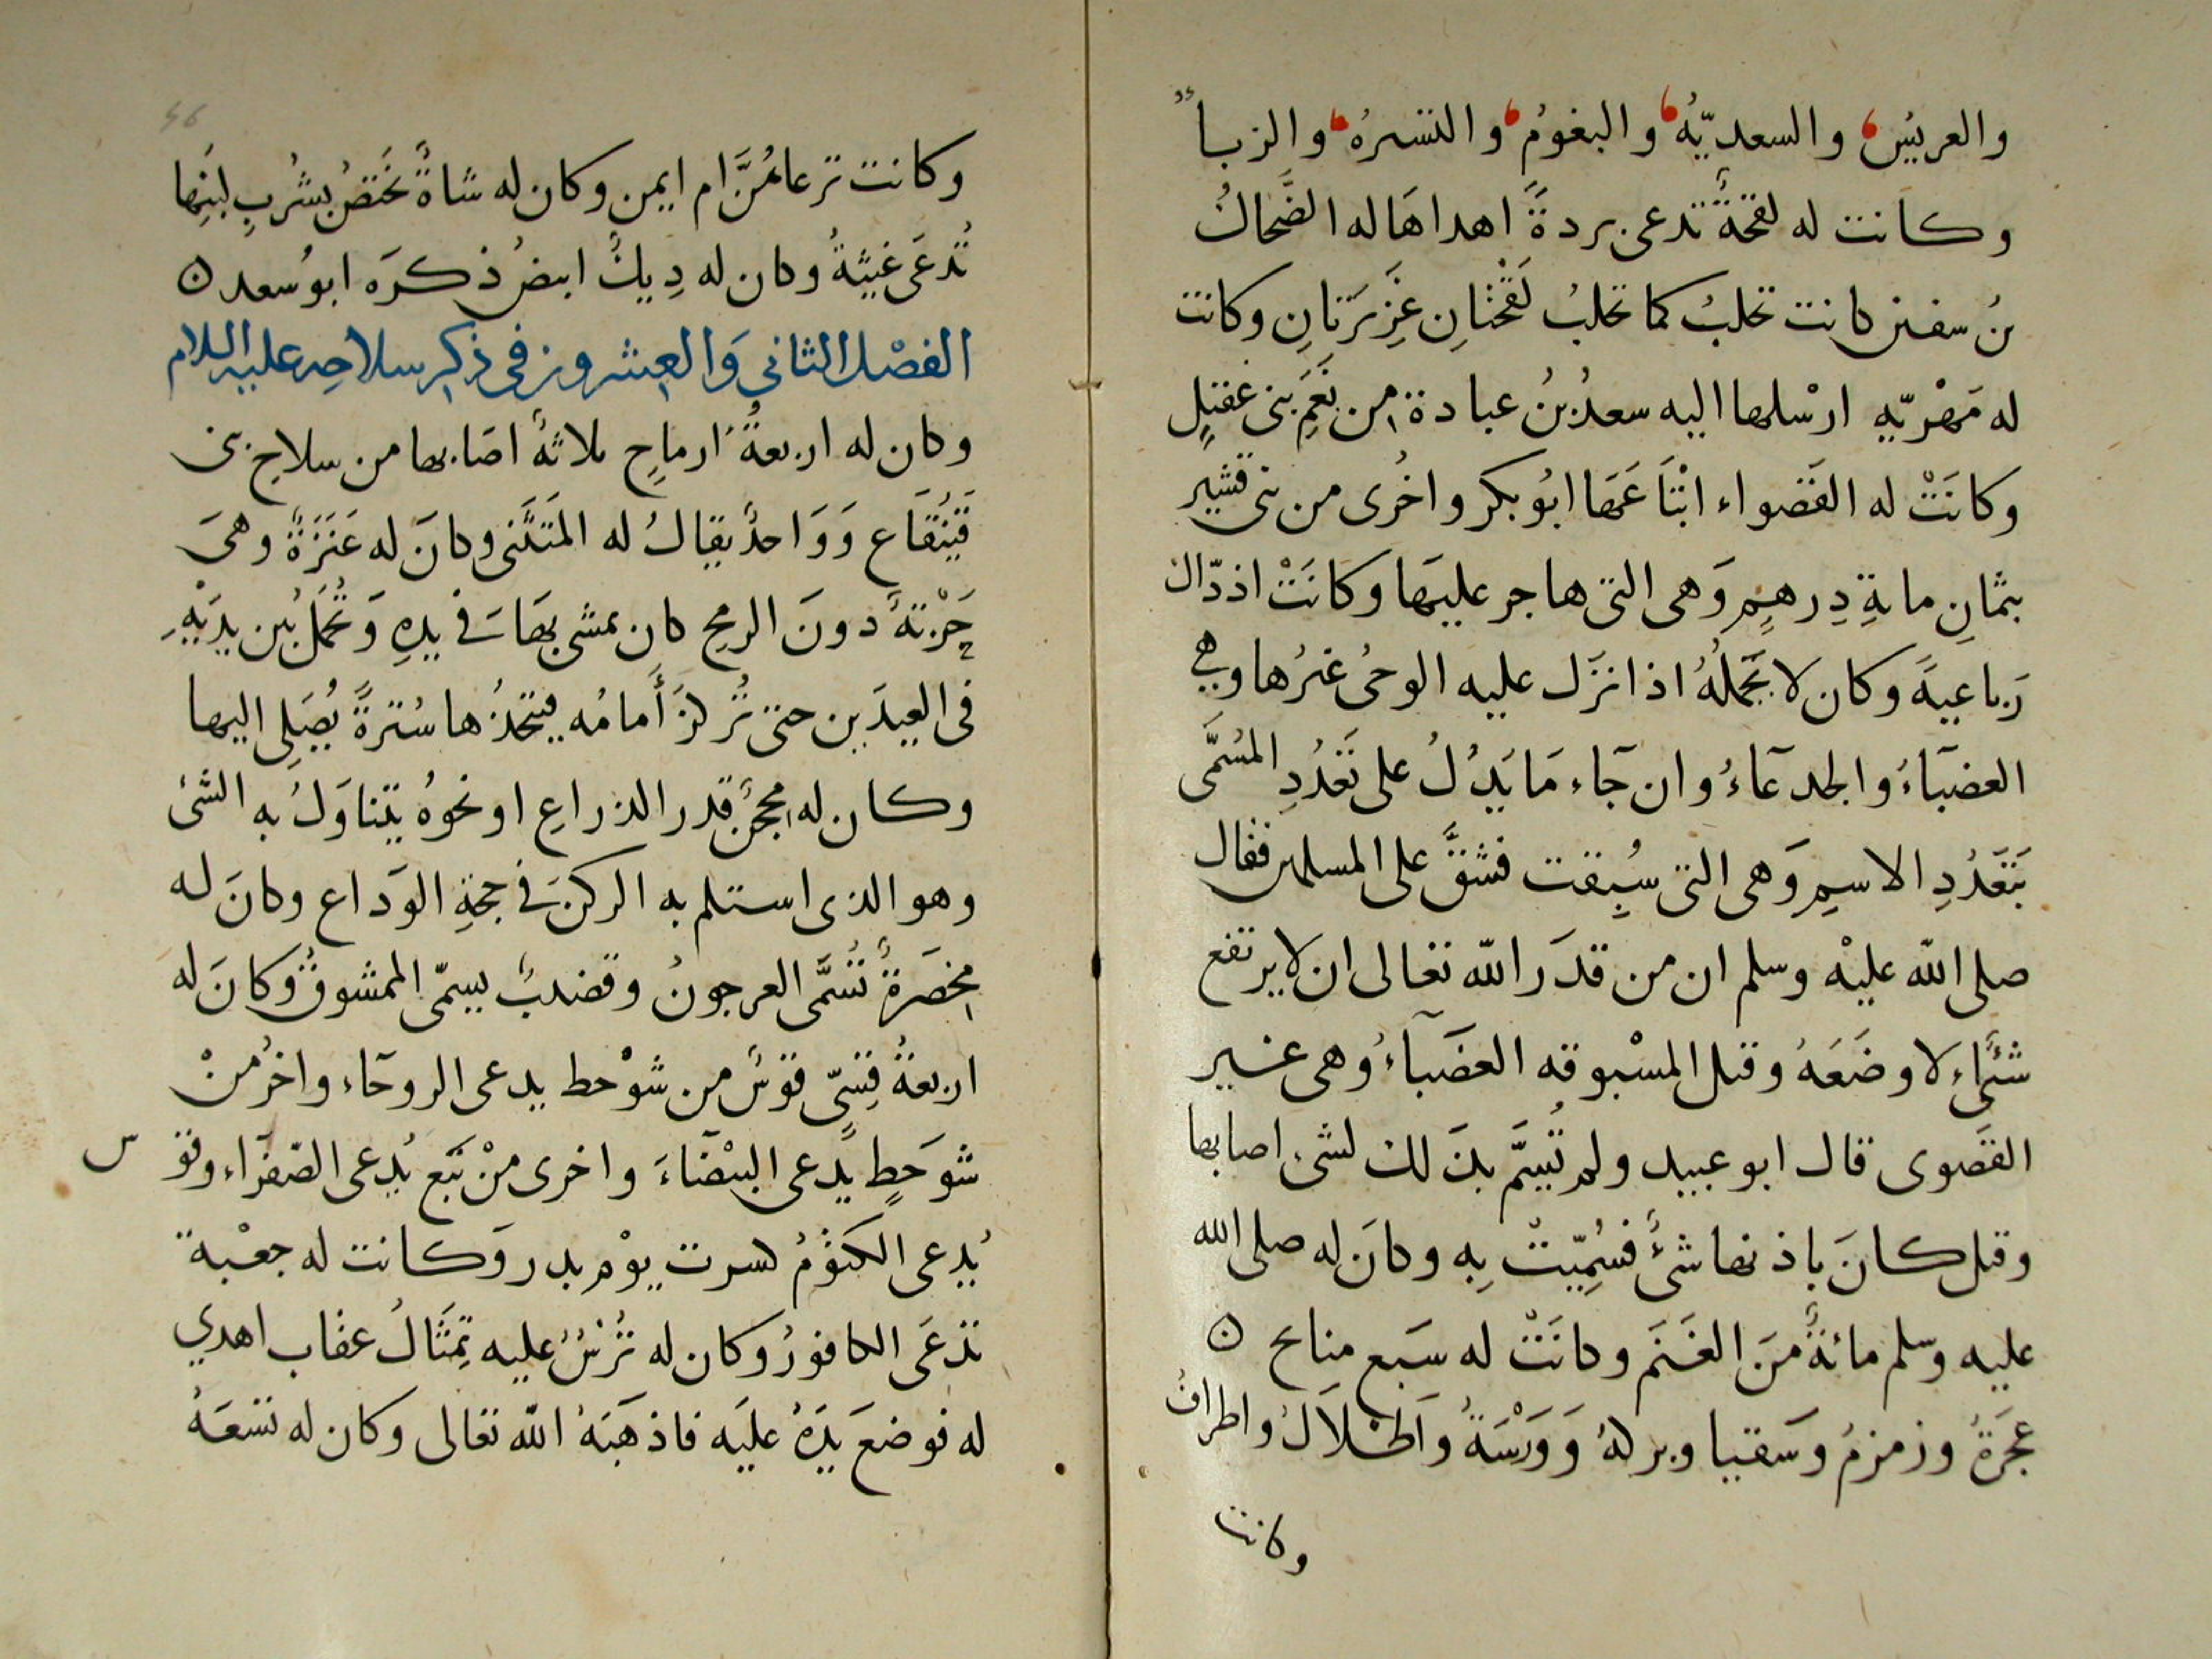 والعريِّس والسعديّهُ والبغومُ واليسيرهُ والزبا
وكانت له لقحةٌ تدعى بردةً اهداهَا له الضَّحاكُ
بنُ سفين كانت تحلبُ كما تحلبُ لَقْحَتانِ غَزِيرَتانِ وكانت
له مَهْريّه ارْسلها اليه سعدُ بنُ عبادة من نَعَمِ بنى عقيلٍ
وكانَتْ له القَصْواء ابْتَاعَهَا ابُو بكر واخُرى من بنى قشير
بثمانِ مايةِ دِرهمٍ وَهى التى هاجر عليهَا وكانَتْ اذ ذّاك
رَباعيةً وكان لا يَحْملُهُ اذا نزَل عليه الوحىُ غيرُها وهي
العضبَاءُ والجدعَاءُ وان جَاء مَا يَدُلُ على تَعَدُدِ المسُمَّى
بتَعَدُدِ الاسمِ وَهى التى سُبِقت فشقَّ على المسلمين فقال
صلى الله عليْه وسلم ان من قدَر الله تعالى ان لا يرتفع
شئٌ الا وضَعَهُ وقيل المسْبوقه العضَباءُ وهى غير
القَصوى قال ابو عبيد ولم تُسَمَّ بذَلك لشئ اصابها
وقيل كانَ باذنها شئٌ فسُمِّيَتْ بِه وكانَ له صلى الله
عليه وسلم مائةٌ مَن الغَنَم وكانَتْ له سَبع منايح ن
عجَرَةُ وزمزمُ وسَقيا وبركهُ وَوَرْسَةُ واَطلالُ واطرافُ
وكانت
46
وكانت ترعاهُنَّ ام ايمن وكان له شاةٌ يختصُّ بشُربِ لبنِها
تُدعَى غيثةُ وكان له دِيكٌ ابيضُ ذكرَه ابوُ سعد ن
الفصْل الثاني وَالعشرون فى ذكر سلاحِه عليه السلام
وكان له اربعةُ ارماحٍ ثلاثةٌ اصَابها من سلاحِ بنى
قَيْنُقَاع وَوَاحدٌ يقالُ له المثَنَّنى وكانَ له عَنَزَةٌ وهىَ
حَرْبَةٌ دونَ الرمحِ كان يمشى بهَا فى يدِهِ وَتُحْمَلُ بين يدَيْهِ
فى العيدَين حتى تُركزَ أَمامُه فيتخذُها سُترةً يُصَلِى اليها
وكان له مِحْجَنٌ قدر الذراعِ او نحوُهُ يتناوَلُ به الشئ
وهو الذى استلم به الركنَ فى حجةِ الوَداعِ وكانَ له
مِخصَرةٌ تُسَمَّى العرجونُ وقضيبٌ يسمّى الممشوقُ وكانَ له
اربعةُ قِسِىّ قوسٌ من شوْحط يدعى الروحَاء واخرُ منْ
شَوحَطٍ يدعى البيْضَاءَ واخرى منْ نَبع يُدعى الصّفَراء وقو
س
يُدعى الكَتوُمُ كسرت يوْم بدر وَكانت له جعْبة
تدعَى الكافورُ وكان له تُرْسٌ عليه تِمثَالُ عقاب اهدي
له فوضعَ يَدَهُ عليَه فاذهَبَهُ الله تعالى وكان له تسَعَةُ